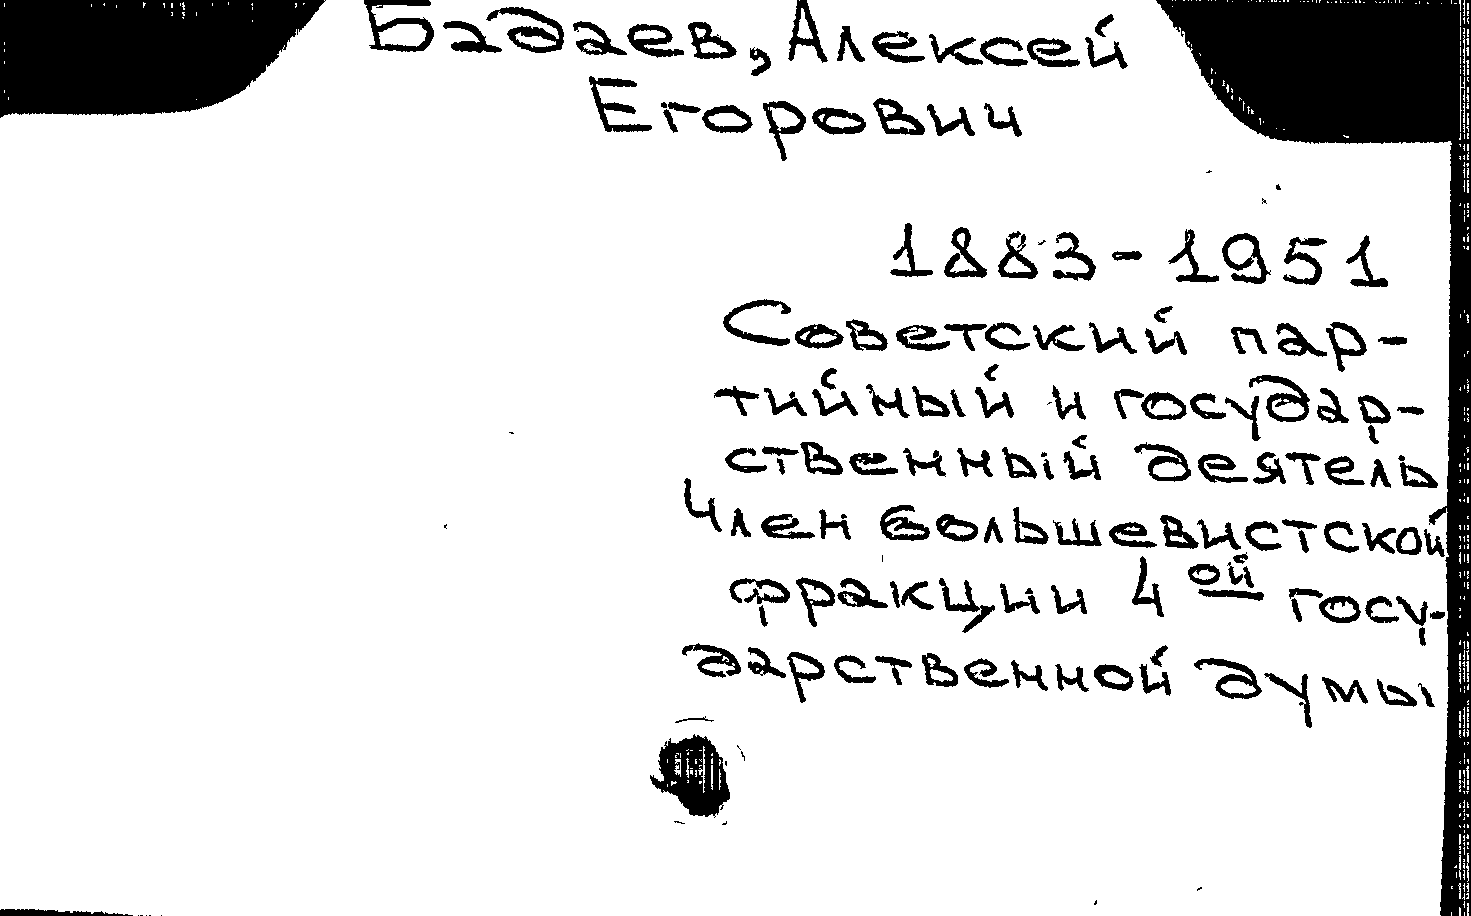 Бадаев, Алексей
Егорович
1883-1951
Советский пар-
тийный и государ-
ственный деятель
Член большевистской
фракции 4ой госу-
дарственной думы